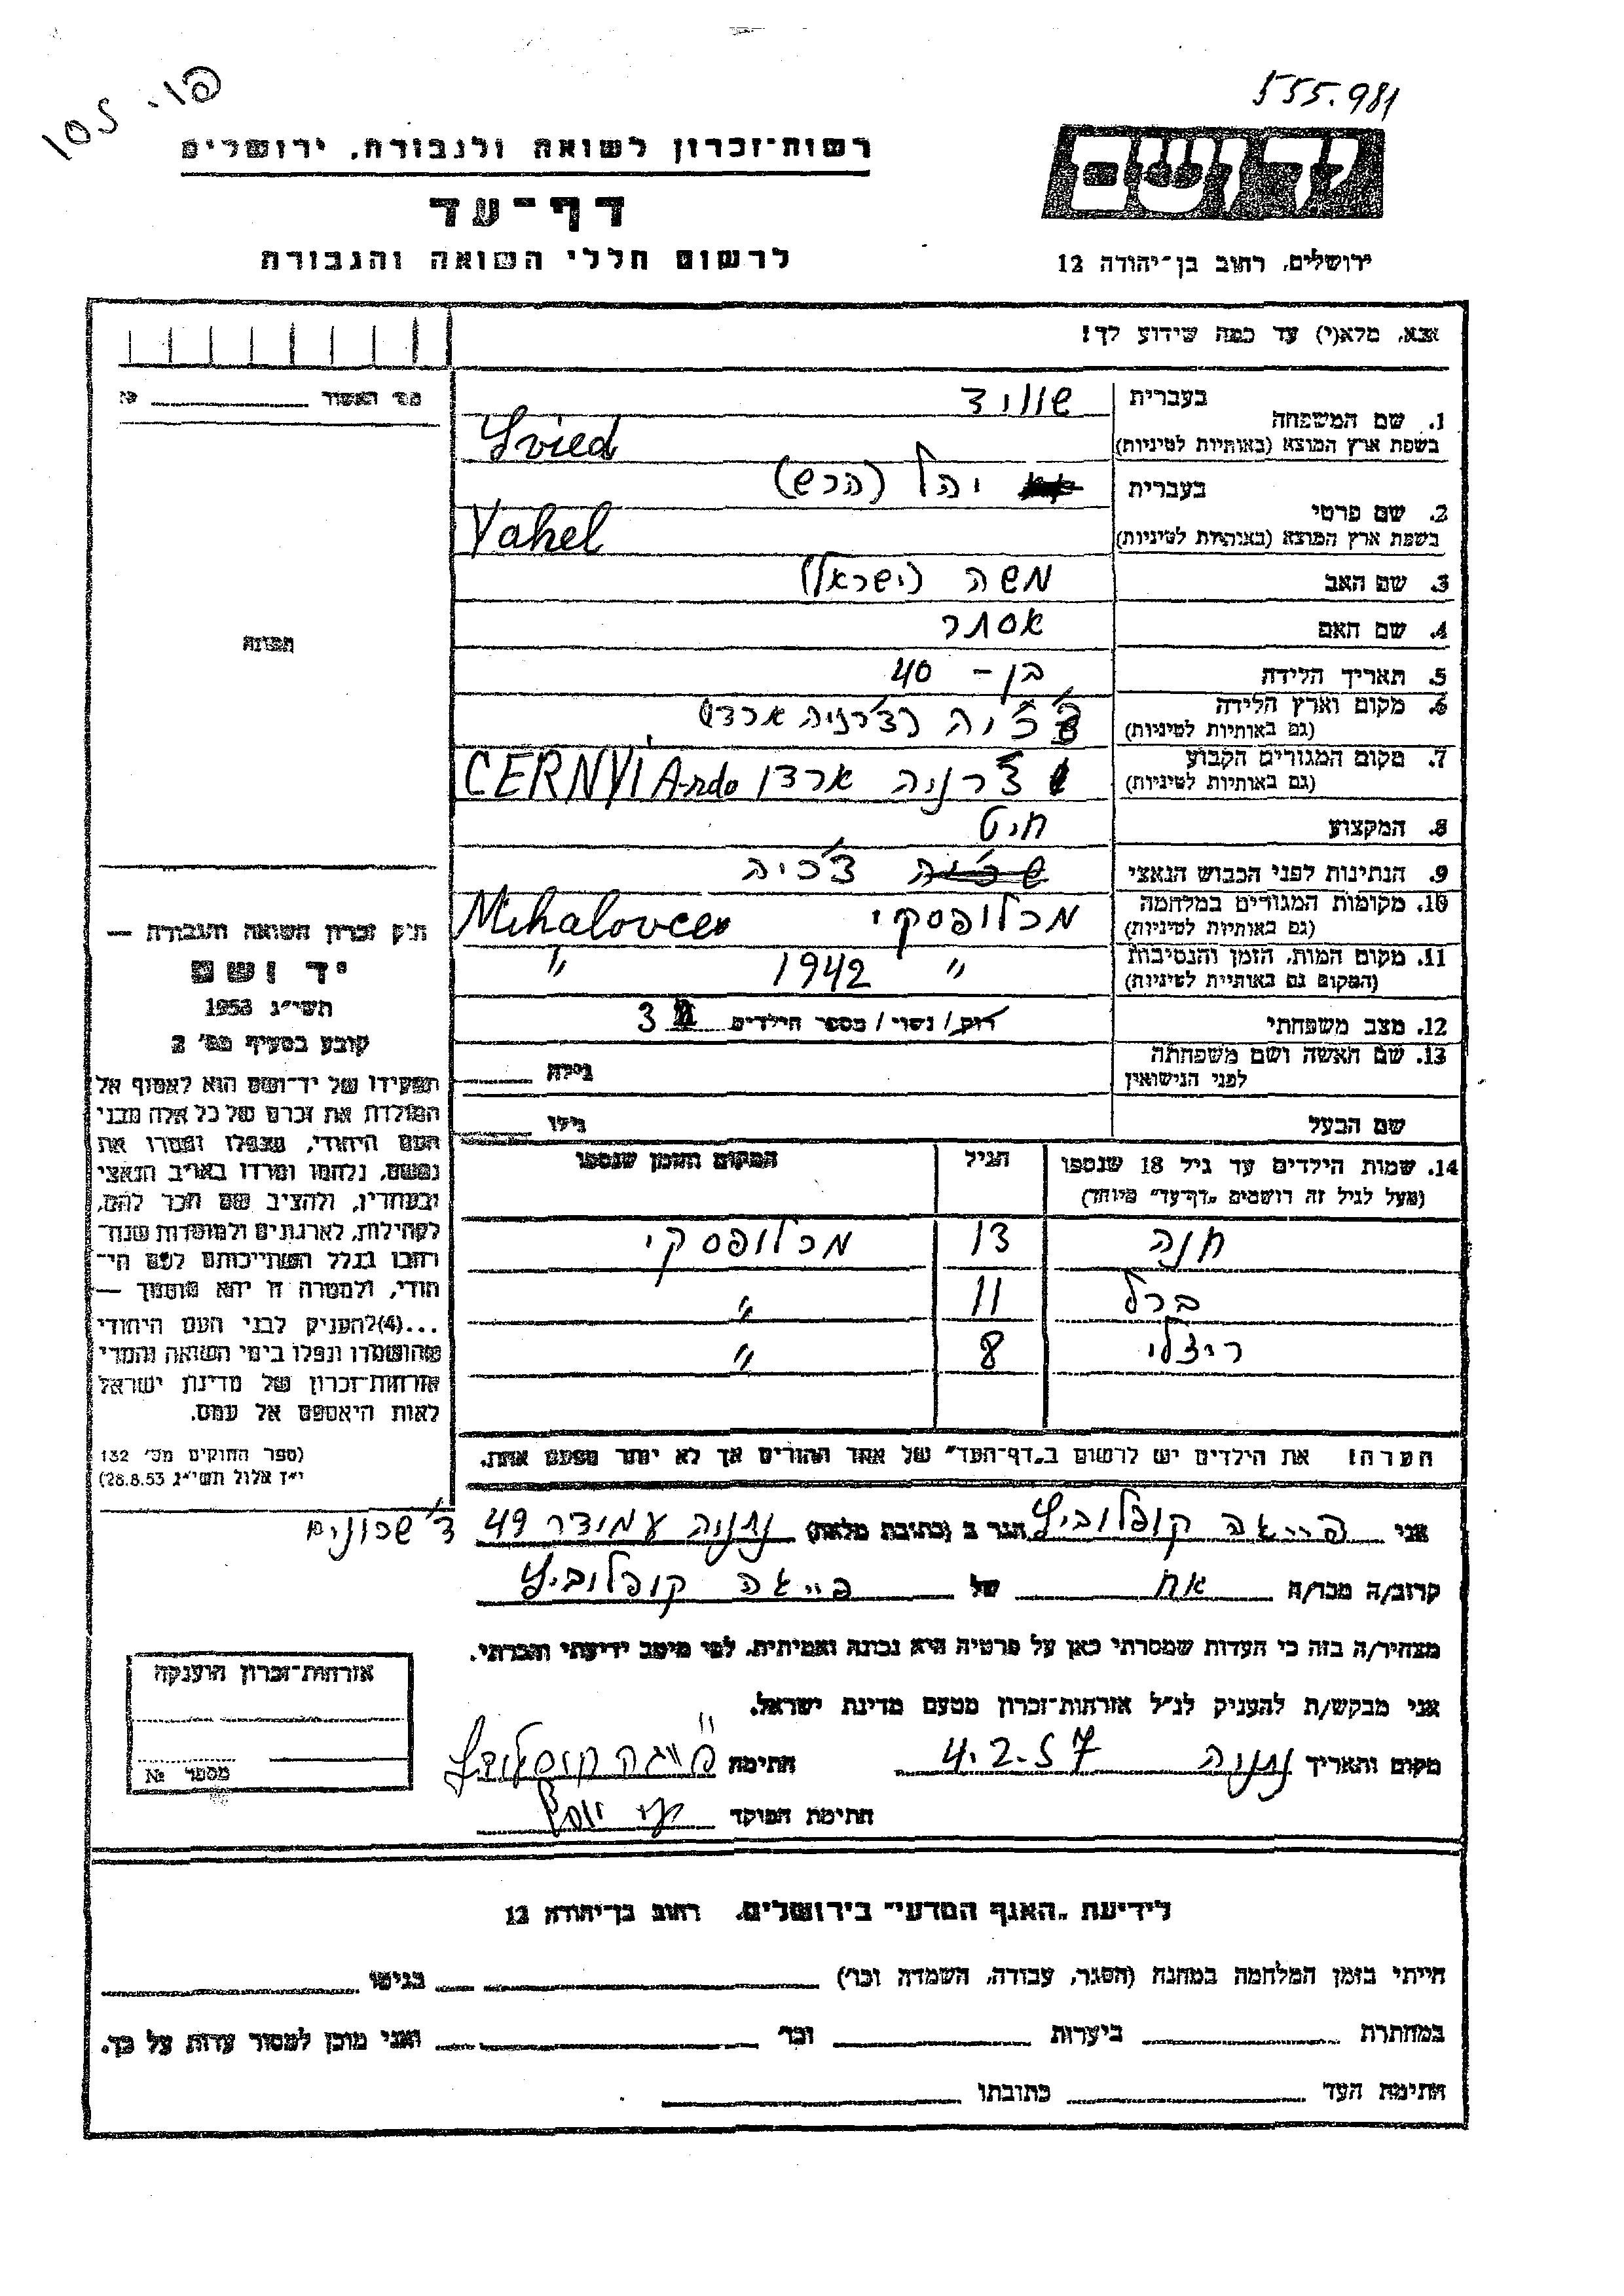 פו- 105
555.981
רשות־זכרון לשואה ולגבורה, ירושלים
דף־עד
לרשום חללי השואה והגבורה
יד ושם
ירושלים, רחוב בן־יהודה 12
אנא, מלא(י) עד כמה שידוע לך!
מס׳ האשור № 
1. שם המשפחה בעברית שוויד
בשפת ארץ המוצא (באותיות לטיניות) Svied
2. שם פרטי בעברית יהל (הרש)
בשפת ארץ המוצא (באותיות לטיניות) Yahel
3. שם האב משה (ישראל)
4. שם האם אסתר
5. תאריך הלידה בן – 40
6. מקום וארץ הלידה (גם באותיות לטיניות) צ'כיה (צ'רניה ארדו)
7. מקום המגורים הקבוע (גם באותיות לטיניות) צ'רניה ארדו CERNYI Ardo
8. המקצוע חיט
9. הנתינות לפני הכבוש הנאצי צ'כיה
10. מקומות המגורים במלחמה (גם באותיות לטיניות) מכלופסקי Mihalovce
11. מקום המות, הזמן והנסיבות (המקום גם באותיות לטיניות) " 1942 "
12. מצב משפחתי רווק / נשוי / מספר הילדים 3
13. שם האשה ושם משפחתה לפני הנישואין גילה
שם הבעל גילו
תמונה
14. שמות הילדים עד גיל 18 שנספו (מעל לגיל זה רושמים „דף־עד״ מיוחד) הגיל המקום והזמן שנספו
חנה 13 מכלופסקי
ברל 11 "
ריצלי 8 "
הערה! את הילדים יש לרשום ב„דף־העד״ של אחד ההורים אך לא יותר מפעם אחת.
חוק זכרון השואה והגבורה —
יד ושם
תשי״ג 1953
קובע בסעיף מס׳ 2
תפקידו של יד־ושם הוא לאסוף אל
המולדת את זכרם של כל אלה מבני
העם היהודי, שנפלו ומסרו את
נפשם, נלחמו ומרדו באויב הנאצי
ובעוזריו, ולהציב שם וזכר להם,
לקהילות, לארגונים ולמוסדות שנח־
רבו בגלל השתייכותם לעם הי־
הודי, ולמטרה זו יהא מוסמך —
...(4) להעניק לבני העם היהודי
שהושמדו ונפלו בימי השואה והמרי
אזרחות־זכרון של מדינת ישראל
לאות היאספם אל עמם.
(ספר החוקים מס׳ 132
י״ז אלול תשי״ג 28.8.53)
אני פייגה קופלוביץ הגר ב (כתובת מלאה) נתניה עמידר 49 ד' שכונים
קרוב/ה מכר/ה אח של פייגה קופלוביץ
מצהיר/ה בזה כי העדות שמסרתי כאן על פרטיה היא נכונה ואמיתית, לפי מיטב ידיעתי והכרתי.
אני מבקש/ת להעניק לנ״ל אזרחות־זכרון מטעם מדינת ישראל.
מקום ותאריך נתניה 4.2.57 חתימה פייגה קופלוביץ
חתימת הפוקד
אזרחות־זכרון הוענקה
מספר №
לידיעת „האגף המדעי״ בירושלים, רחוב בן־יהודה 12
הייתי בזמן המלחמה במחנה (הסגר, עבודה, השמדה וכו׳) בגיטו
במחתרת ביערות וכו׳ ואני מוכן למסור עדות על כך.
חתימת העד כתובתו